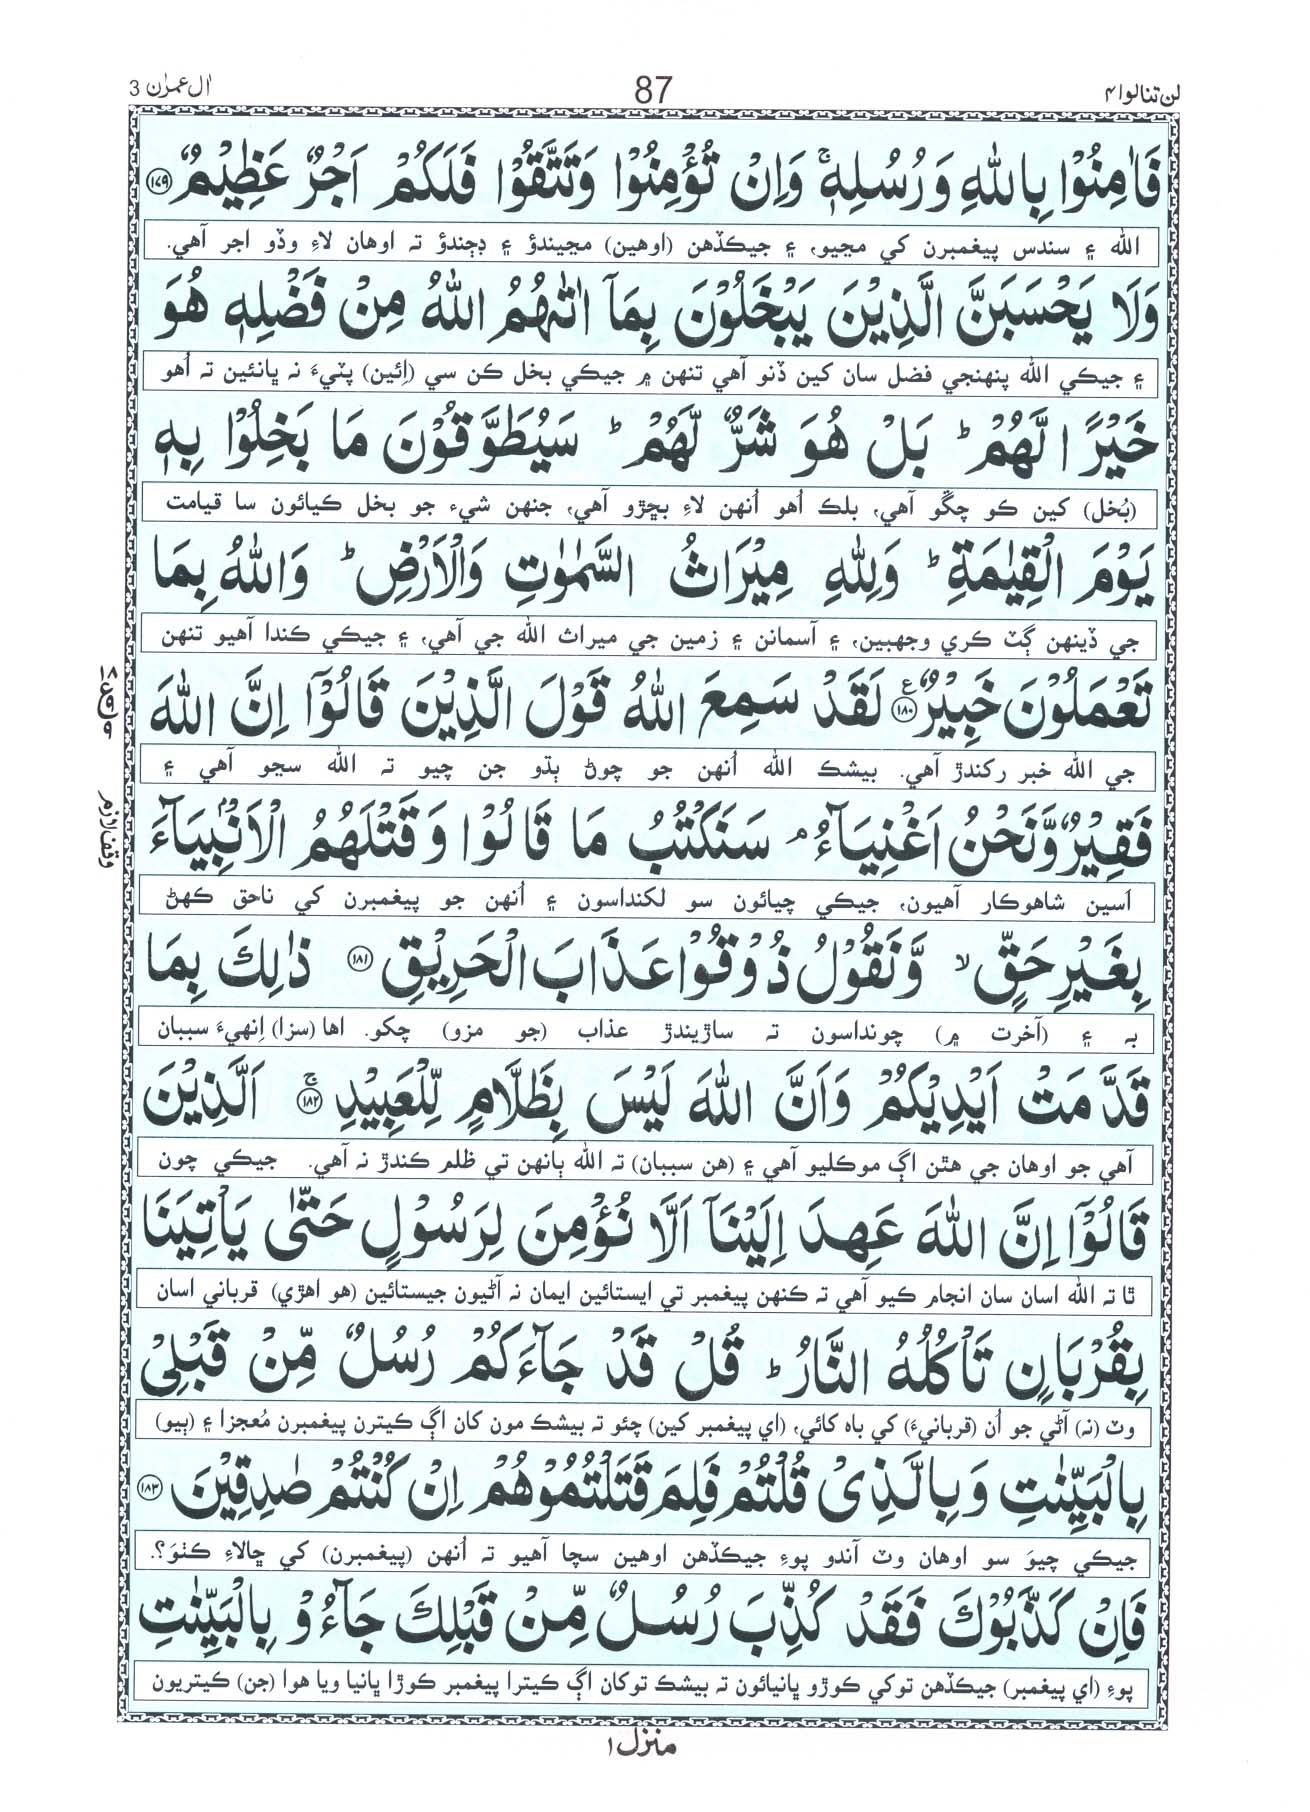 لن تنالوا ۴ 87 اٰل عمرٰن 3
فَاٰمِنُوْا بِاللّٰهِ وَ رُسُلِهٖ ۚ وَ اِنْ تُؤْمِنُوْا وَ تَتَّقُوْا فَلَكُمْ اَجْرٌ عَظِيْمٌ ﴿۱۷۹﴾
الله ۽ سندس پيغمبرن کي مڃيو، ۽ جيڪڏهن (اوهين) مڃيندؤ ۽ ڊڄندؤ ته اوهان لاءِ وڏو اجر آهي.
وَلَا يَحْسَبَنَّ الَّذِيْنَ يَبْخَلُوْنَ بِمَاۤ اٰتٰىهُمُ اللّٰهُ مِنْ فَضْلِهٖ هُوَ
۽ جيڪي الله پنهنجي فضل سان کين ڏنو آهي تنهن ۾ جيڪي بخل ڪن سي (اِئين) پٽيءَ نہ ڀانئين تہ اُهو
خَيْرًا لَّهُمْ ؕ بَلْ هُوَ شَرٌّ لَّهُمْ ؕ سَيُطَوَّقُوْنَ مَا بَخِلُوْا بِهٖ
(بُخل) کين ڪو چڱو آهي، بلڪ اُهو اُنهن لاءِ بڇڙو آهي، جنهن شيءِ جو بخل ڪيائون سا قيامت
يَوْمَ الْقِيٰمَةِ ؕ وَ لِلّٰهِ مِيْرَاثُ السَّمٰوٰتِ وَ الْاَرْضِ ؕ وَ اللّٰهُ بِمَا
جي ڏينهن ڳٽ ڪري وجهبين، ۽ آسمانن ۽ زمين جي ميراث الله جي آهي، ۽ جيڪي ڪندا آهيو تنهن
تَعْمَلُوْنَ خَبِيْرٌ ﴿۱۸۰﴾ لَقَدْ سَمِعَ اللّٰهُ قَوْلَ الَّذِيْنَ قَالُوْۤا اِنَّ اللّٰهَ
جي الله خبر رکندڙ آهي. بيشڪ الله اُنهن جو چوڻ ٻڌو جن چيو تہ الله سڃو آهي ۽
وقف لازم
فَقِيْرٌ وَّ نَحْنُ اَغْنِيَآءُ ۘ سَنَكْتُبُ مَا قَالُوْا وَ قَتْلَهُمُ الْاَنْۢبِيَآءَ
اَسين شاهوڪار آهيون، جيڪي چيائون سو لکنداسون ۽ اُنهن جو پيغمبرن کي ناحق ڪهڻ
بِغَيْرِ حَقٍّ ۙ وَّ نَقُوْلُ ذُوْقُوْا عَذَابَ الْحَرِيْقِ ﴿۱۸۱﴾ ذٰلِكَ بِمَا
بہ ۽ (آخرت ۾) چونداسون تہ ساڙيندڙ عذاب (جو مزو) چکو. اها (سزا) اِنهيءَ سببان
قَدَّمَتْ اَيْدِيْكُمْ وَ اَنَّ اللّٰهَ لَيْسَ بِظَلَّامٍ لِّلْعَبِيْدِ ۚ ﴿۱۸۲﴾ اَلَّذِيْنَ
آهي جو اوهان جي هٿن اڳ موڪليو آهي ۽ (هن سببان) تہ الله ٻانهن تي ظلم ڪندڙ نہ آهي. جيڪي چون
قَالُوْۤا اِنَّ اللّٰهَ عَهِدَ اِلَيْنَاۤ اَلَّا نُؤْمِنَ لِرَسُوْلٍ حَتّٰى يَاْتِيَنَا
ٿا تہ الله اسان سان انجام ڪيو آهي تہ ڪنهن پيغمبر تي ايستائين ايمان نہ آڻيون جيستائين (هو اهڙي) قرباني اسان
بِقُرْبَانٍ تَاْكُلُهُ النَّارُ ؕ قُلْ قَدْ جَآءَكُمْ رُسُلٌ مِّنْ قَبْلِيْ
وٽ (نہ) آڻي جو اُن (قربانيءَ) کي باہ کائي، (اي پيغمبر کين) چئو تہ بيشڪ مون کان اڳ ڪيترن پيغمبرن مُعجزا ۽ (ٻيو)
بِالْبَيِّنٰتِ وَ بِالَّذِيْ قُلْتُمْ فَلِمَ قَتَلْتُمُوْهُمْ اِنْ كُنْتُمْ صٰدِقِيْنَ ﴿۱۸۳﴾
جيڪي چيوَ سو اوهان وٽ آندو پوءِ جيڪڏهن اوهين سچا آهيو تہ اُنهن (پيغمبرن) کي ڇالاءِ ڪٺوَ؟.
فَاِنْ كَذَّبُوْكَ فَقَدْ كُذِّبَ رُسُلٌ مِّنْ قَبْلِكَ جَآءُوْ بِالْبَيِّنٰتِ
پوءِ (اي پيغمبر) جيڪڏهن توکي ڪوڙو ڀانيائون تہ بيشڪ توکان اڳ ڪيترا پيغمبر ڪوڙا ڀانيا ويا هوا (جن) ڪيتريون
منزل ۱